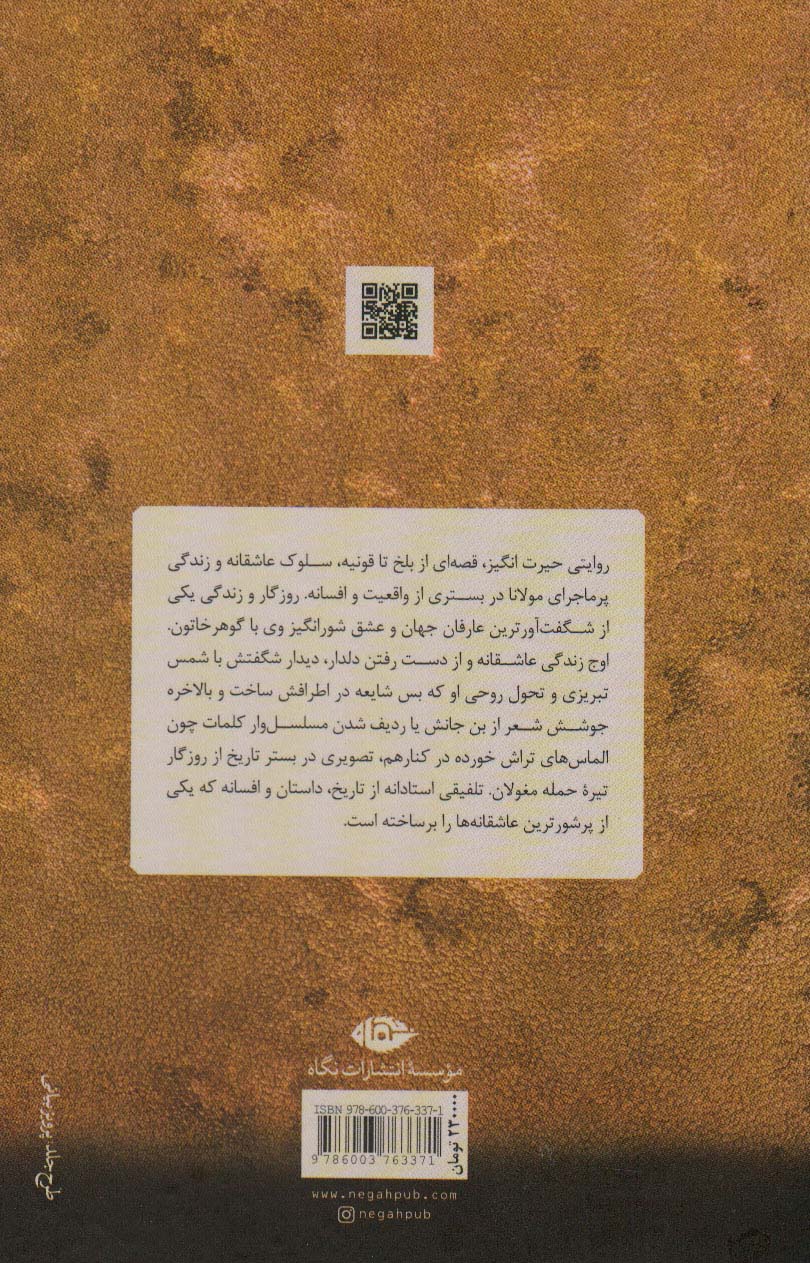 روایتی حیرت انگیز، قصه‌ای از بلخ تا قونیه، سلوک عاشقانه و زندگی
پرماجرای مولانا در بستری از واقعیت و افسانه. روزگار و زندگی یکی
از شگفت‌آورترین عارفان جهان و عشق شورانگیز وی با گوهرخاتون.
اوج زندگی عاشقانه و از دست رفتن دلدار، دیدار شگفتش با شمس
تبریزی و تحول روحی او که بس شایعه در اطرافش ساخت و بالاخره
جوشش شعر از بن جانش یا ردیف شدن مسلسل‌وار کلمات چون
الماس‌های تراش خورده در کنارهم، تصویری در بستر تاریخ از روزگار
تیرهٔ حمله مغولان. تلفیقی استادانه از تاریخ، داستان و افسانه که یکی
از پرشورترین عاشقانه‌ها را برساخته است.
موسسهٔ انتشارات نگاه
ISBN 978-600-376-337-1
9 786003 763371
۲۳۰۰۰۰ تومان
www.negahpub.com
negahpub
طرح جلد: پرویز بیانی